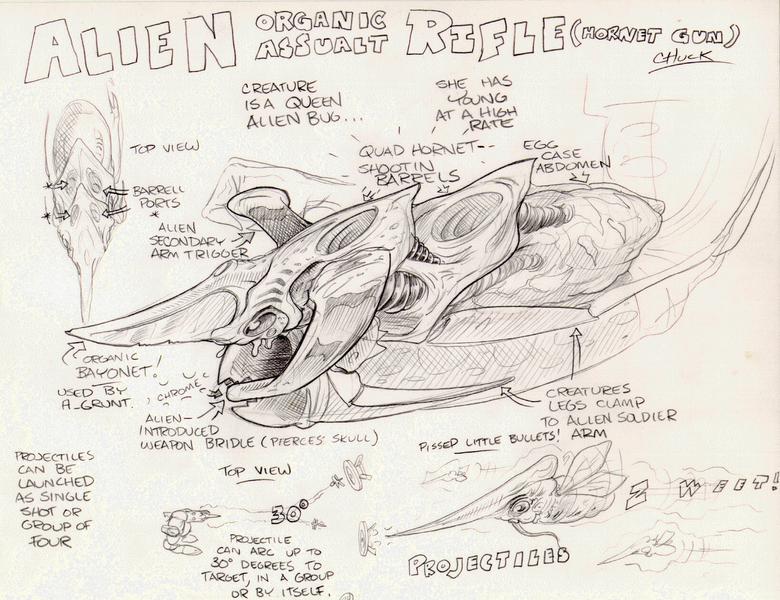 ALIEN ORGANIC ASSUALT RIFLE (HORNET GUN)
CHUCK
CREATURE
IS A QUEEN
ALIEN BUG...
SHE HAS
YOUNG
AT A HIGH
RATE
TOP VIEW
QUAD HORNET--
SHOOTIN
BARRELS
EGG
CASE
ABDOMEN
BARRELL
PORTS
*
ALIEN
SECONDARY
ARM TRIGGER
ORGANIC
BAYONET!
USED BY
A-GRUNT.
CHROME
ALIEN-
INTRODUCED
WEAPON BRIDLE (PIERCES SKULL)
CREATURES
LEGS CLAMP
TO ALIEN SOLDIER
ARM
PROJECTILES
CAN BE
LAUNCHED
AS SINGLE
SHOT OR
GROUP OF
FOUR
TOP VIEW
30°
PROJECTILE
CAN ARC UP TO
30° DEGREES TO
TARGET, IN A GROUP
OR BY ITSELF.
PISSED LITTLE BULLETS!
Z WEET!
PROJECTILES